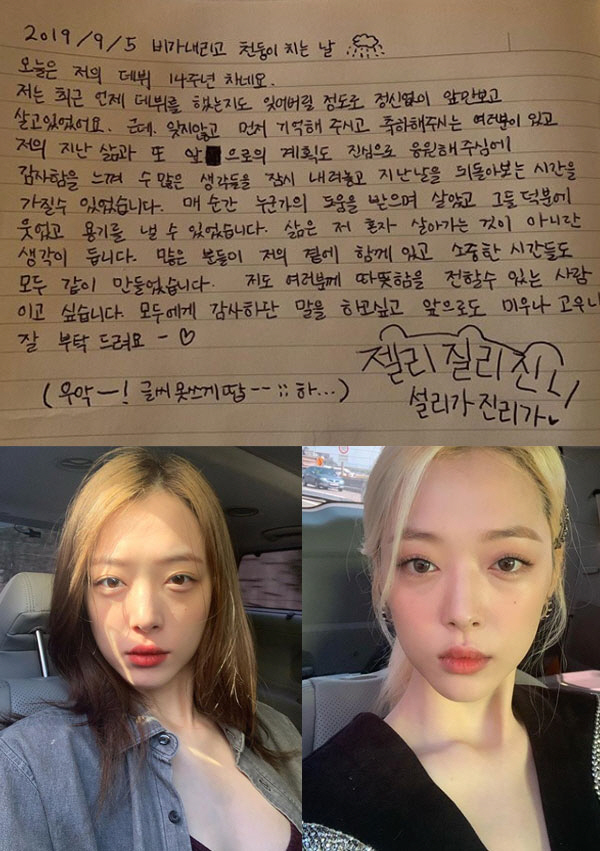 2019/9/5 비가내리고 천둥이 치는 날
오늘은 저의 데뷔 14주년 차네요.
저는 최근 언제 데뷔를 했는지도 잊어버릴 정도로 정신없이 앞만보고
살고있었어요. 근데, 잊지않고 먼저 기억해 주시고 축하해주시는 여러분이 있고
저의 지난 삶과 또 앞으로의 계획도 진심으로 응원해 주심에
감사함을 느껴 수많은 생각들을 잠시 내려놓고 지난날을 뒤돌아보는 시간을
가질수 있었습니다. 매 순간 누군가의 도움을 받으며 살았고 그들 덕분에
웃었고 용기를 낼 수 있었습니다. 삶은 저 혼자 살아가는 것이 아니란
생각이 듭니다. 많은 분들이 저의 곁에 함께 있고 소중한 시간들도
모두 같이 만들었습니다. 저도 여러분께 따뜻함을 전할수 있는 사람
이고 싶습니다. 모두에게 감사하단 말을 하고싶고 앞으로도 미우나 고우나
잘 부탁 드려요 - ♡
젤리질리진
(우악—! 글씨 못쓰게땁 --;; 하...)
설리가진리가♥